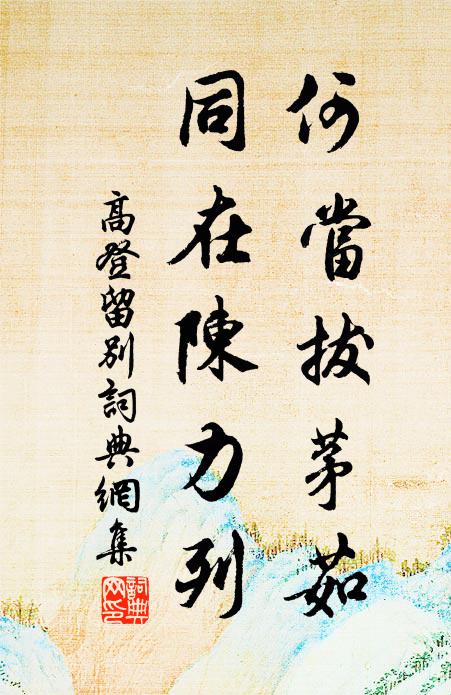 何當拔茅茹
同在陳力列
高登留別詞典網集
詞典網印